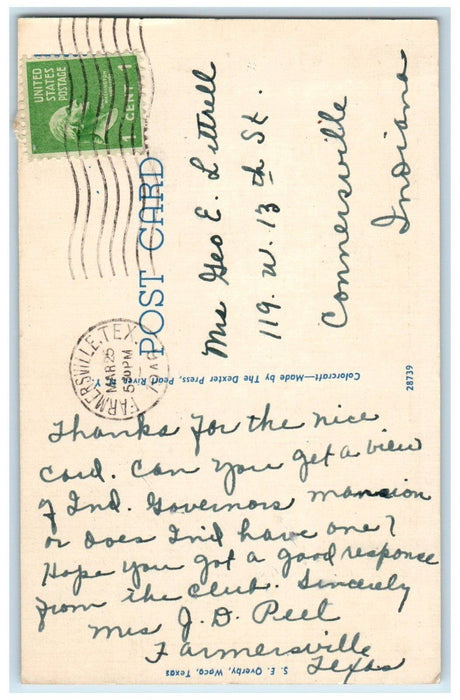 UNITED
STATES
POSTAGE
1 CENT 1
POST CARD
FARMERSVILLE, TEX.
MAR 25
5 PM
Mrs Geo E. Littrell
119. W. 13th St.
Connersville
Indiana
Colorcraft—Made by The Dexter Press, Pearl River, N. Y.
28739
Thanks for the nice
card. Can you get a view
of Ind. Governors mansion
or does Ind have one?
Hope you got a good response
from the club. Sincerely
Mrs J. D. Peel
Farmersville
Texas
S. E. Overby, Waco, Texas